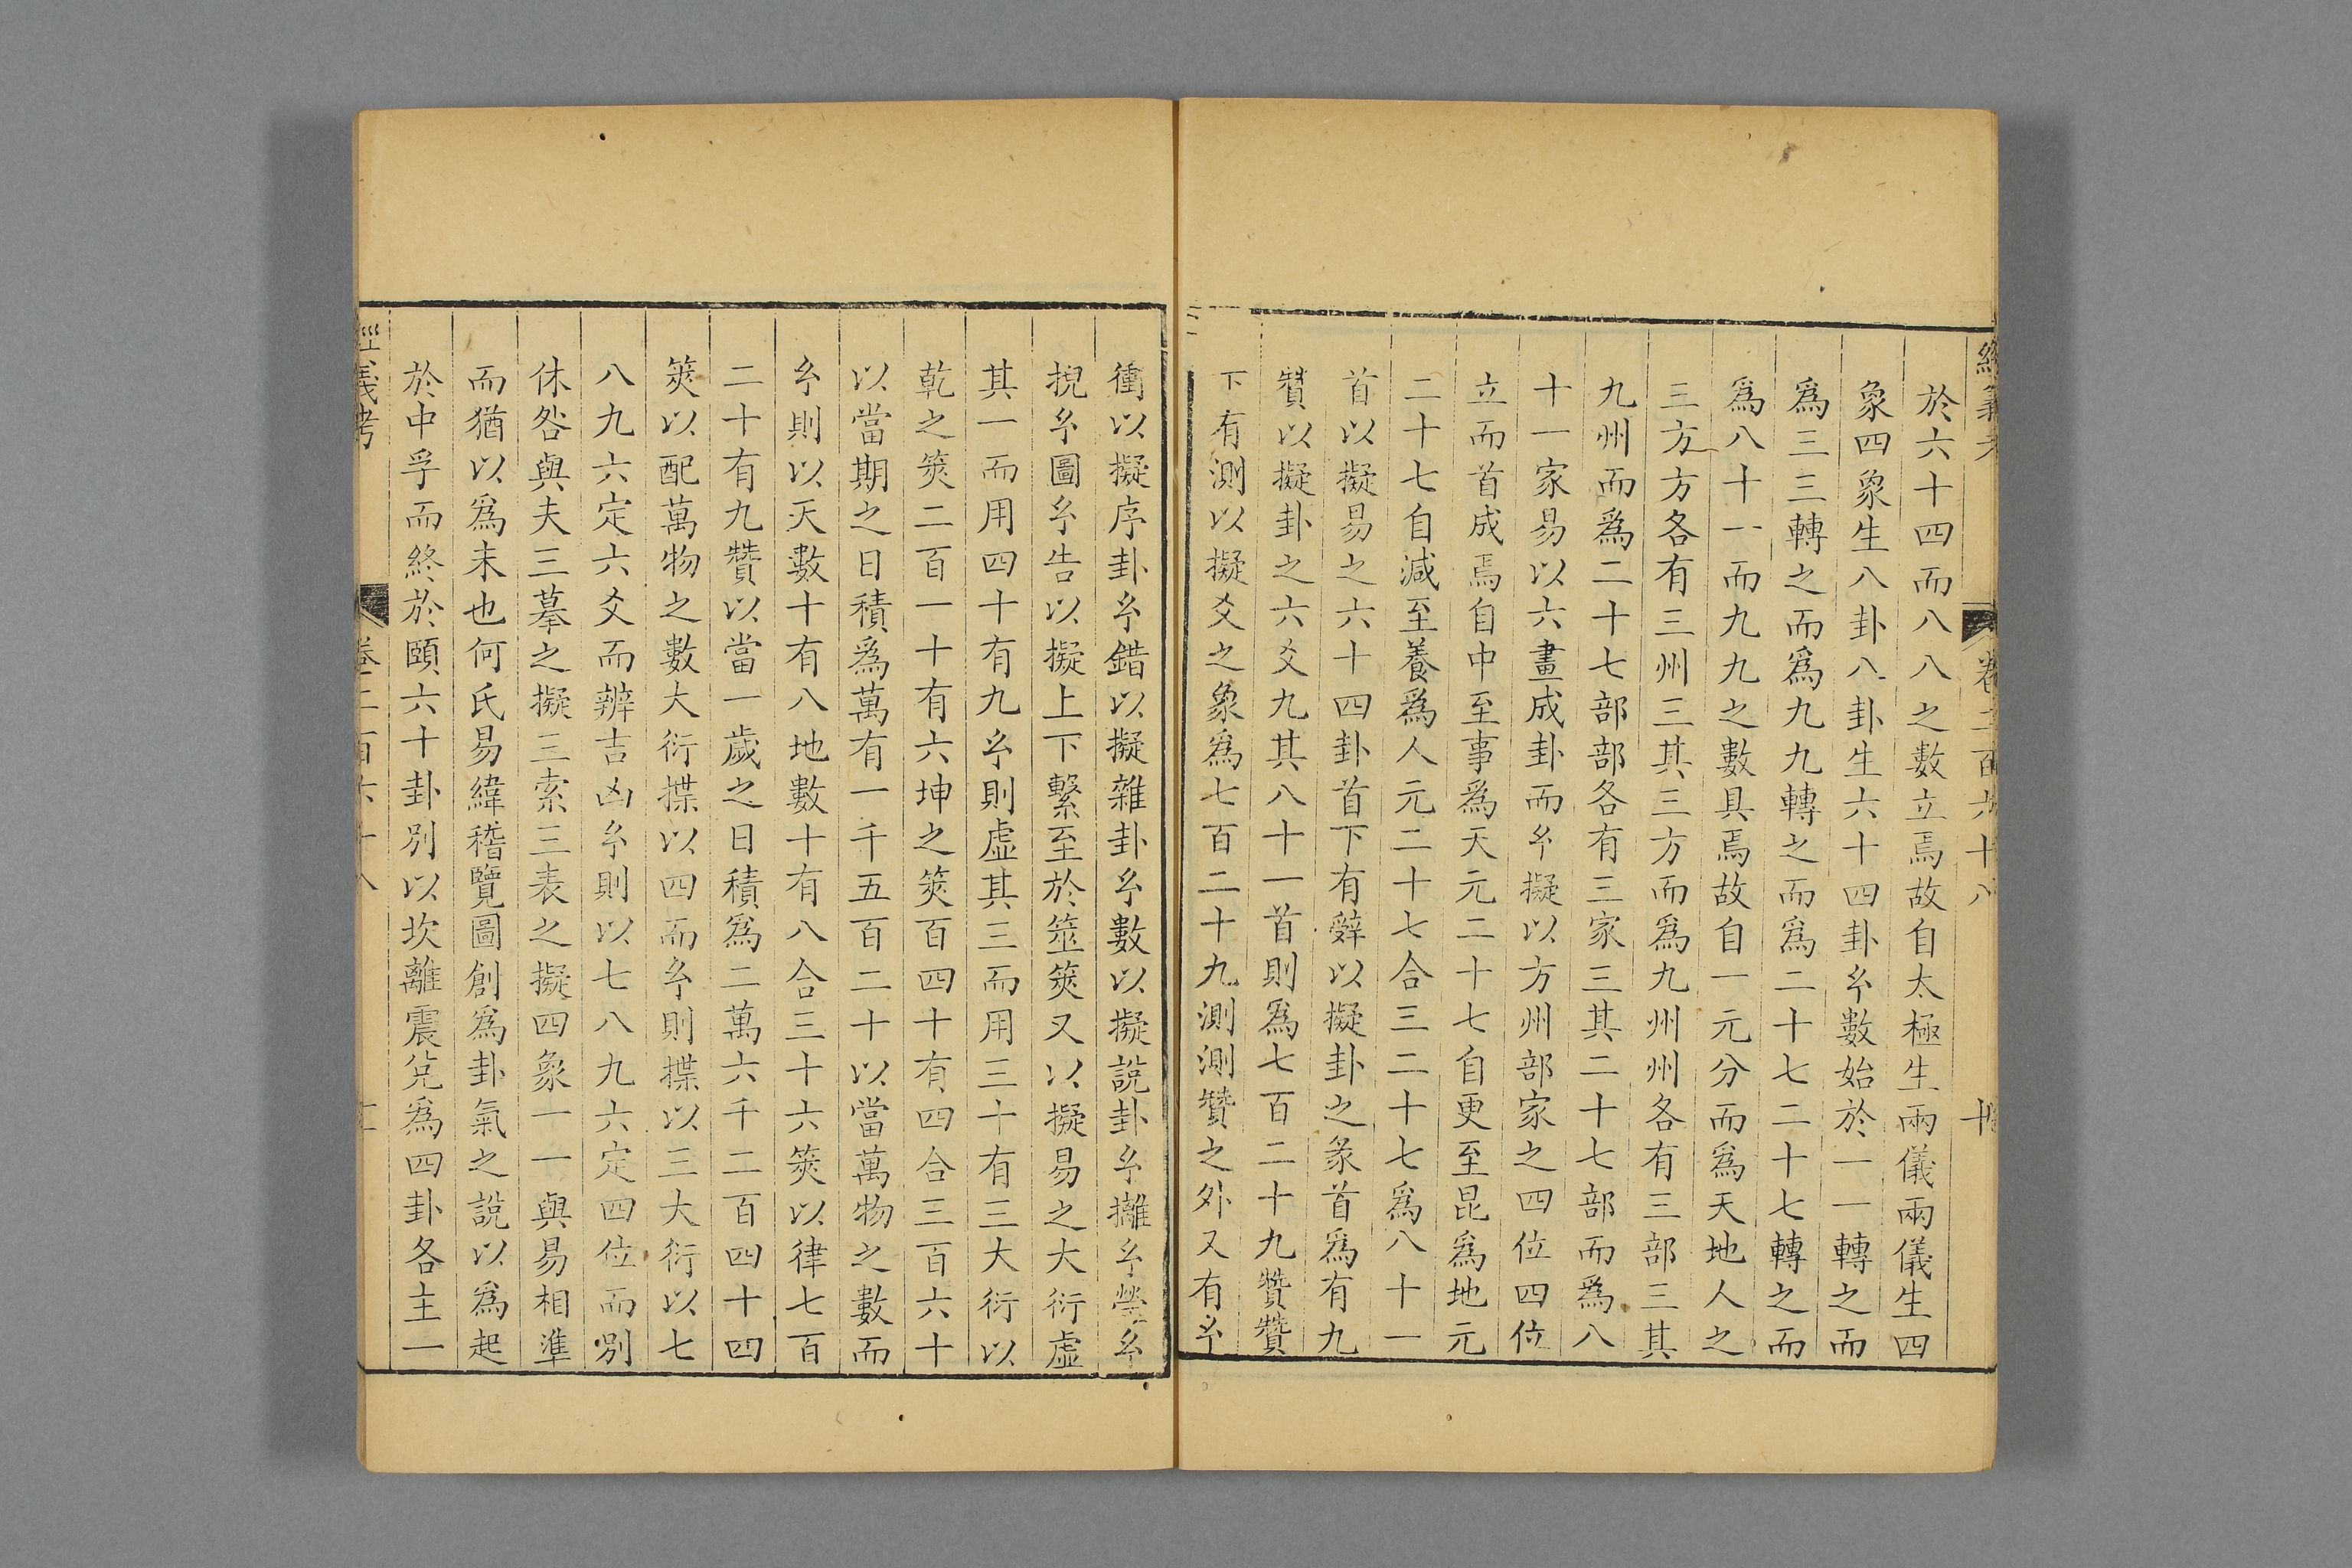 經義考 卷二百六十八 十
於六十四而八八之數立焉故自太極生兩儀兩儀生四
象四象生八卦八卦生六十四卦玄數始於一一轉之而
爲三三轉之而爲九九轉之而爲二十七二十七轉之而
爲八十一而九九之數具焉故自一元分而爲天地人之
三方方各有三州三其三方而爲九州州各有三部三其
九州而爲二十七部部各有三家三其二十七部而爲八
十一家易以六畫成卦而玄擬以方州部家之四位四位
立而首成焉自中至事爲天元二十七自更至昆爲地元
二十七自減至養爲人元二十七合三二十七爲八十一
首以擬易之六十四卦首下有辭以擬卦之彖首爲有九
贊以擬卦之六爻九其八十一首則爲七百二十九贊贊
下有測以擬爻之象爲七百二十九測測贊之外又有玄
衝以擬序卦玄錯以擬雜卦玄數以擬說卦玄攡玄瑩玄
掜玄圖玄告以擬上下繫至於筮筴又以擬易之大衍虛
其一而用四十有九玄則虛其三而用三十有三大衍以
乾之筴二百一十有六坤之筴百四十有四合三百六十
以當期之日積爲萬有一千五百二十以當萬物之數而
玄則以天數十有八地數十有八合三十六筴以律七百
二十有九贊以當一歲之日積爲二萬六千二百四十四
筴以配萬物之數大衍揲以四而玄則揲以三大衍以七
八九六定六爻而辨吉凶玄則以七八九六定四位而別
休咎與夫三摹之擬三索三表之擬四象一一與易相準
而猶以爲未也何氏易緯稽覽圖創爲卦氣之說以爲起
於中孚而終於頤六十卦別以坎離震兌爲四卦各主一
經義考 卷二百六十八 十一